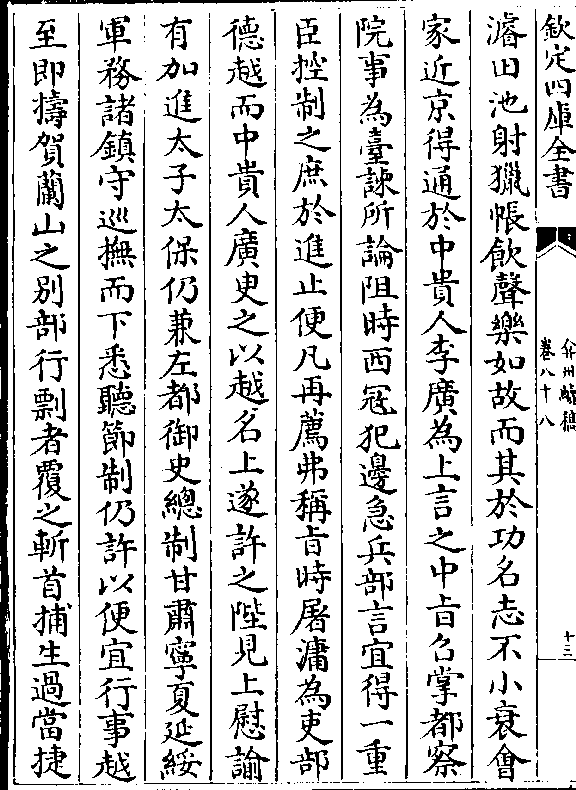 欽定四庫全書
弇州續稿
卷八十八
十三
濬田池射獵帳飲聲樂如故而其於功名志不小衰會
家近京得通於中貴人李廣為上言之中旨召掌都察
院事為臺諫所論阻時西冦犯邊急兵部言宜得一重
臣控制之庶於進止便凡再薦弗稱旨時屠滽為吏部
德越而中貴人廣更之以越名上遂許之陛見上慰諭
有加進太子太保仍兼左都御史總制甘肅寧夏延綏
軍務諸鎮守巡撫而下悉聽節制仍許以便宜行事越
至即擣賀蘭山之別部行剽者覆之斬首捕生過當捷